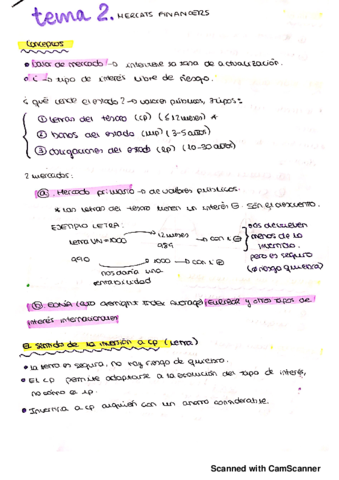 tema 2. MERCATS FINANCERS
Conceptos
tasa de mercado → interviene sa tasa de actualización.
i → tipo de interés libre de riesgo.
¿ qué vende el estado? → valores públicos, 3 tipos:
① letras del tesoro (cp) (6 12 meses) *
② bonos del estado (mp) (3-5 años)
③ obligaciones del estado (lp) (10-30 años)
2 mercados:
ⓐ Mercado primario → de valores públicos.
* las letras del tesoro tienen un interés ⊖. Son el descuento.
EJEMPLO LETRA:
letra VN = 1000 → 12 meses 984 → con i ⊖
nos devuelven menos de lo invertido. pero es seguro (∅ riesgo quiebra)
990 → 1000 → con i ⊕
nos daría una rentabilidad
ⓑ overnight index average, EURIBOR y otros tipos de
interés internacionales
El sentido de la inversión a cp (Letra)
• la letra es segura, no hay riesgo de quiebra.
• El cp permite adaptarse a la evolución del tipo de interés,
no como a lp.
• Invertiría a cp alguien con un ahorro considerable.
Scanned with CamScanner